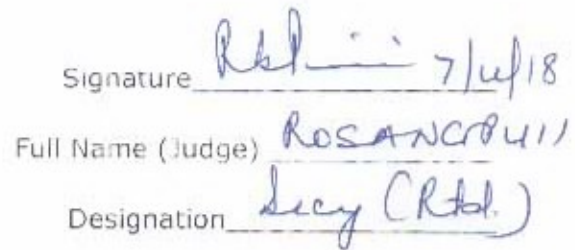 Signature 7/11/18
Full Name (Judge) ROSANGPUII
Designation Secy (Rtd.)